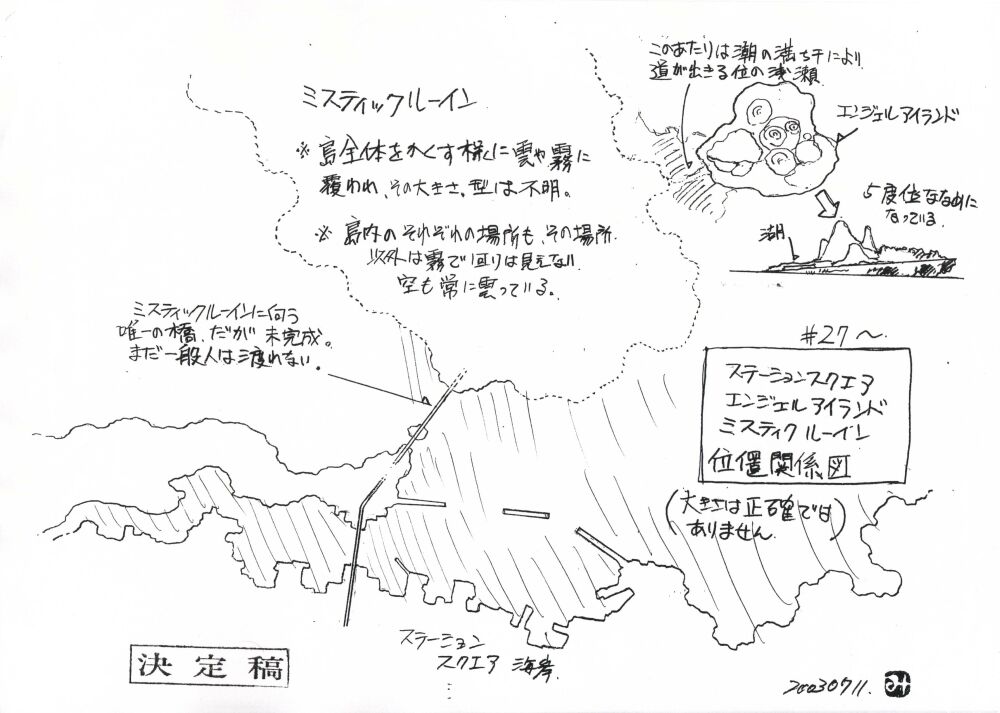 ミスティックルーイン
※島全体をかくす様に雲や霧に
覆われ、その大きさ、型は不明。
※島内のそれぞれの場所も、その場所
以外は霧で回りは見えない
空も常に雲っている。
このあたりは潮の満ち干により
道が出きる位の浅瀬
エンジェルアイランド
5度位ななめに
なっている
湖
ミスティックルーインに向う
唯一の橋、だが未完成。
まだ一般人は渡れない。
#27〜
ステーションスクエア
エンジェルアイランド
ミスティクルーイン
位置関係図
(大きさは正確では
ありません)
ステーション
スクエア 海岸
決定稿
20030711.